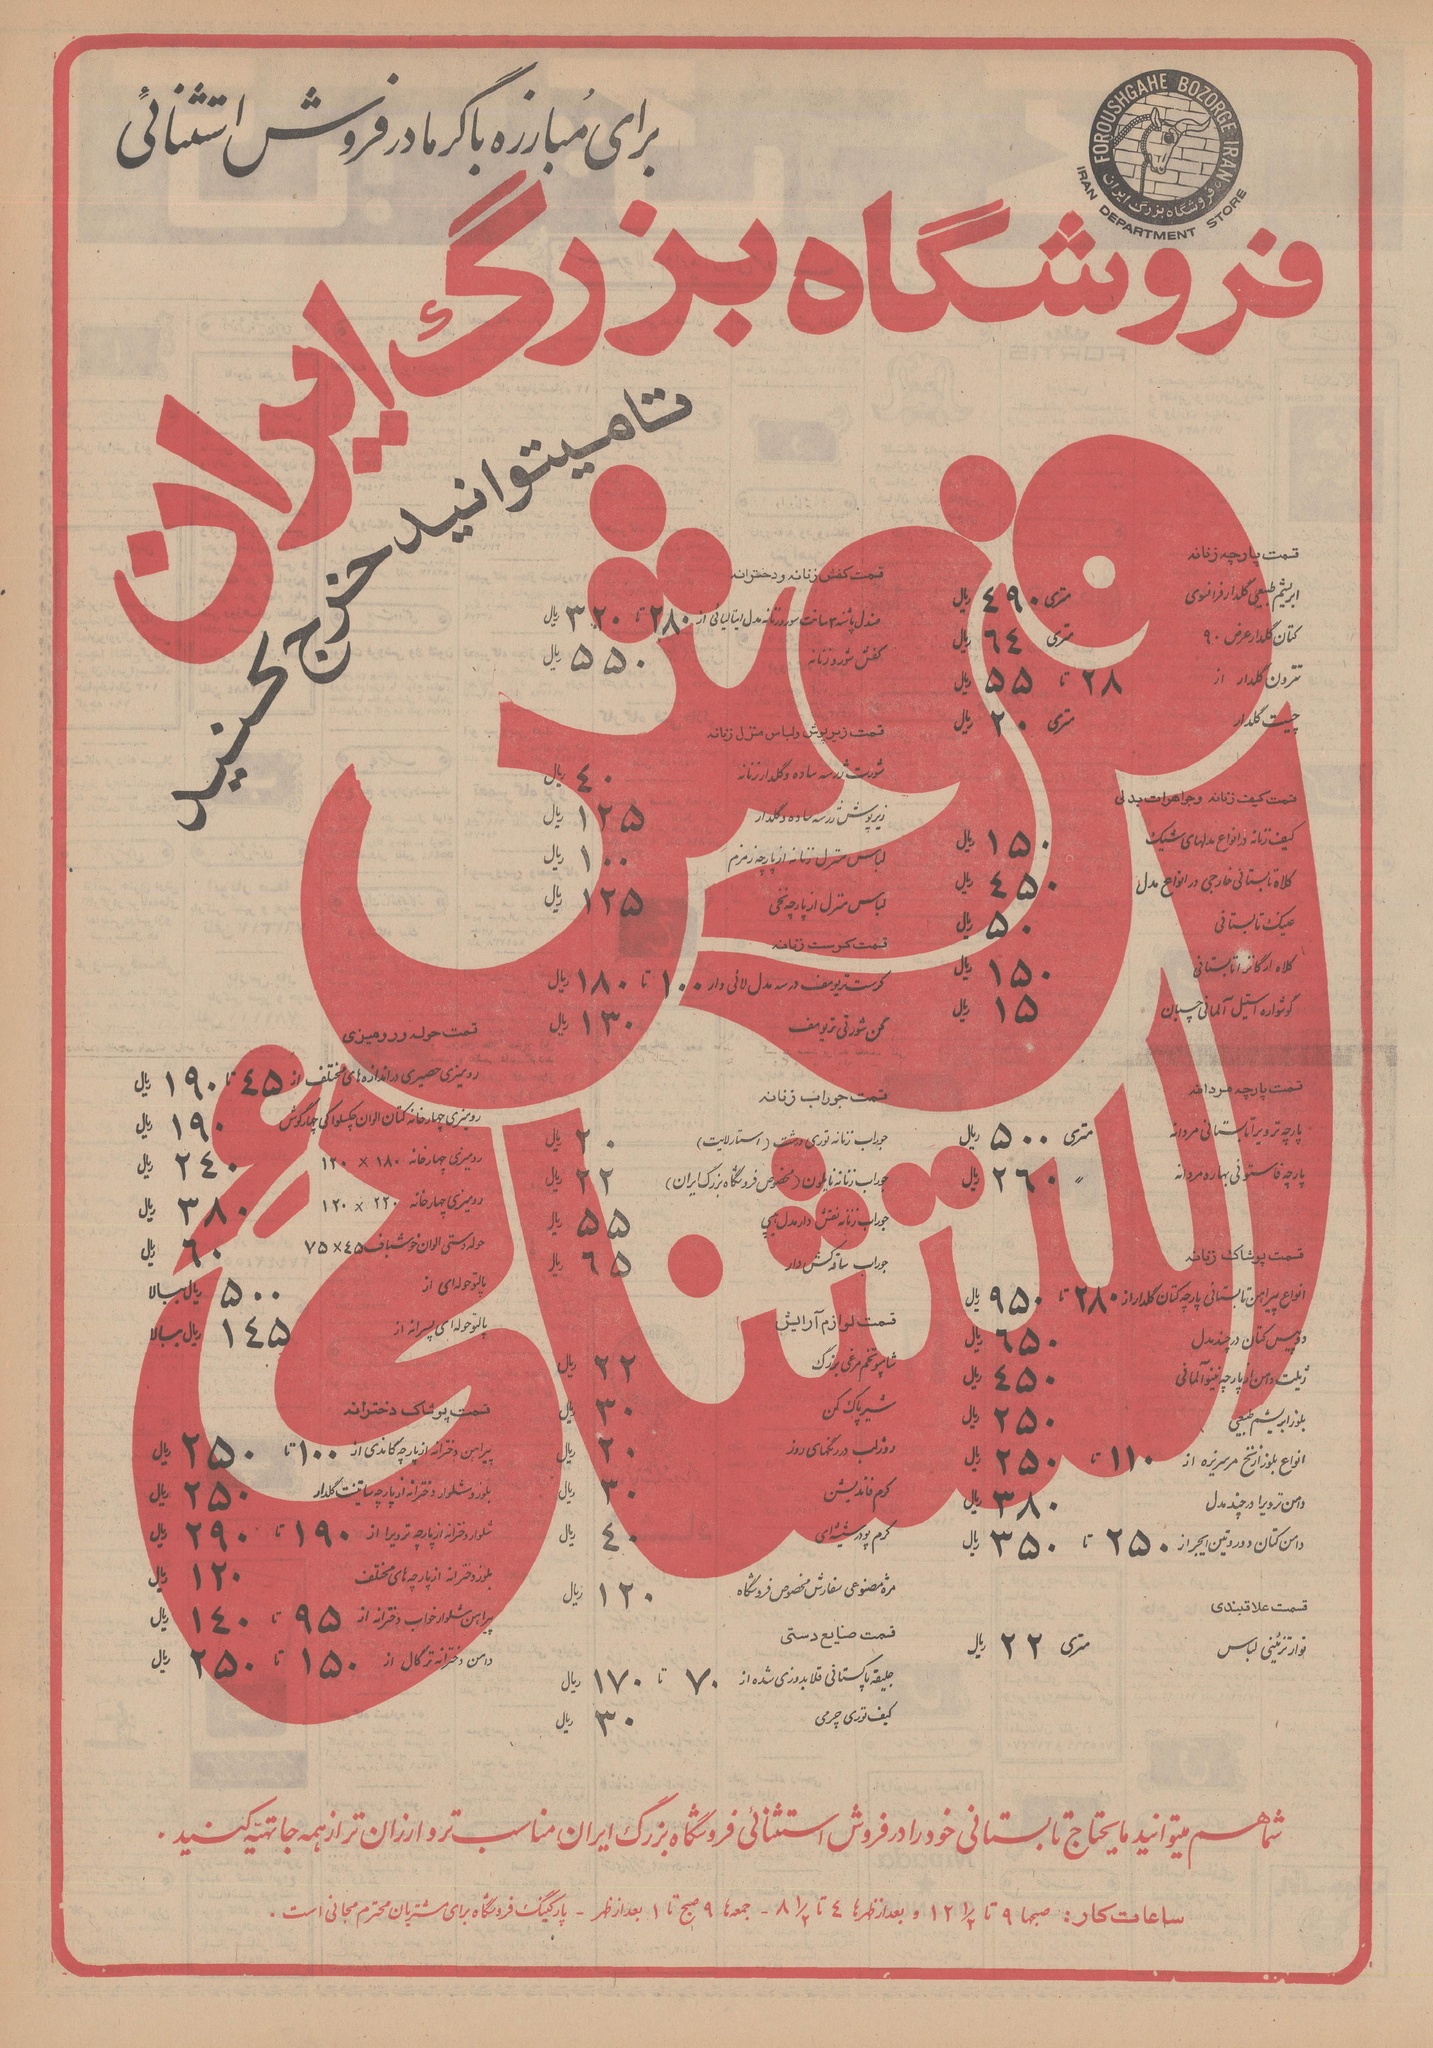 FOROUSHGAHE BOZORGE IRAN
فروشگاه بزرگ ایران
IRAN DEPARTMENT STORE
برای مبارزه با گرما در فروش استثنائی
فروشگاه بزرگ ایران
تا میتوانید خرج کنید
فروش استثنائی
قسمت پارچه زنانه
ابریشم طبیعی گلدار فرانسوی متری ۴۹۰ ریال
کتان گلدار عرض ۹۰ متری ۶۴ ریال
تترون گلدار از ۲۸ تا ۵۵ ریال
چیت گلدار متری ۲۰ ریال
قسمت کیف زنانه وجواهرات بدلی
کیف زنانه در انواع مدلهای شیک ۱۵۰ ریال
کلاه تابستانی خارجی در انواع مدل ۴۵۰ ریال
عینک تابستانی ۵۰ ریال
کلاه ارگانزا تابستانی ۱۵۰ ریال
گوشواره استیل آلمانی چسبان ۱۵ ریال
قسمت پارچه مردانه
پارچه ترویرا تابستانی مردانه متری ۵۰۰ ریال
پارچه فاستونی بهاره مردانه " ۲۶۰ ریال
قسمت پوشاک زنانه
انواع پیراهن تابستانی پارچه کتان گلدار از ۲۸۰ تا ۹۵۰ ریال
دوپیس کتان در چند مدل ۶۵۰ ریال
ژیلت دامن از پارچه نینو آلمانی ۴۵۰ ریال
بلوز ابریشم طبیعی ۲۵۰ ریال
انواع بلوز از نخ مرسریزه از ۱۱۰ تا ۲۵۰ ریال
دامن ترویرا در چند مدل ۳۸۰ ریال
دامن کتان و دورو تین ایجر از ۲۵۰ تا ۳۵۰ ریال
قسمت علاقبندی
نوار تزئینی لباس متری ۲۲ ریال
قسمت کفش زنانه و دخترانه
صندل پاشنه ۳ سانت سور زنانه مدل ایتالیائی از ۲۸۰ تا ۳۲۰ ریال
کفش شورو زنانه ۵۵۰ ریال
قسمت زیرپوش ولباس منزل زنانه
شورت ژرسه ساده و گلدار زنانه ۴۰ ریال
زیرپوش ژرسه ساده و گلدار ۱۲۵ ریال
لباس منزل زنانه از پارچه زمزم ۱۰۰ ریال
لباس منزل از پارچه نخی ۱۲۵ ریال
قسمت کرست زنانه
کرست تریومف در سه مدل لائی دار ۱۰۰ تا ۱۸۰ ریال
گن شورتی تریومف ۱۳۰ ریال
قسمت جوراب زنانه
جوراب زنانه توری درشت (استارلایت) ۲۰ ریال
جوراب زنانه نایلون (مخصوص فروشگاه بزرگ ایران) ۲۲ ریال
جوراب زنانه نقش دار مدل هیپی ۵۵ ریال
جوراب ساقه کش دار ۶۵ ریال
قسمت لوازم آرایش
شامپو تخم مرغی بزرگ ۲۲ ریال
شیر پاک کن ۳۰ ریال
روژ لب در رنگهای روز ۲۰ ریال
کرم فاندیشن ۳۰ ریال
کرم پودر شیشه‌ای ۴۰ ریال
مژه مصنوعی سفارش مخصوص فروشگاه ۱۲۰ ریال
قسمت صنایع دستی
جلیقه پاکستانی قلابدوزی شده از ۷۰ تا ۱۷۰ ریال
کیف توری چرمی ۳۰ ریال
قسمت حوله و رومیزی
رومیزی حصیری در اندازه های مختلف از ۴۵ تا ۱۹۰ ریال
رومیزی چهارخانه کتان الوان چکسلواکی چهارگوش ۱۹۰ ریال
رومیزی چهارخانه ۱۸۰ × ۱۲۰ ۲۴۰ ریال
رومیزی چهارخانه ۲۲۰ × ۱۲۰ ۳۸۰ ریال
حوله دستی الوان خوشباف ۴۵×۷۵ ۶۰ ریال
پالتو حوله‌ای از ۵۰۰ ریال ببالا
پالتو حوله‌ای پسرانه از ۱۴۵ ریال ببالا
قسمت پوشاک دخترانه
پیراهن دخترانه از پارچه گاندی از ۱۰۰ تا ۲۵۰ ریال
بلوز و شلوار دخترانه از پارچه ساتنت گلدار ۲۵۰ ریال
شلوار دخترانه از پارچه ترویرا از ۱۹۰ تا ۲۹۰ ریال
بلوز دخترانه از پارچه های مختلف ۱۲۰ ریال
پیراهن شلوار خواب دخترانه از ۹۵ تا ۱۴۰ ریال
دامن دخترانه ترگال از ۱۵۰ تا ۲۵۰ ریال
شما هم میتوانید مایحتاج تابستانی خود را در فروش استثنائی فروشگاه بزرگ ایران مناسب تر و ارزان تر از همه جا تهیه کنید .
ساعات کار : صبحها ۹ تا ۱۲ ۱/۲ و بعدازظهرها ۴ تا ۸ ۱/۲ - جمعه‌ها ۹ صبح تا ۱ بعدازظهر - پارکینگ فروشگاه برای مشتریان محترم مجانی است .